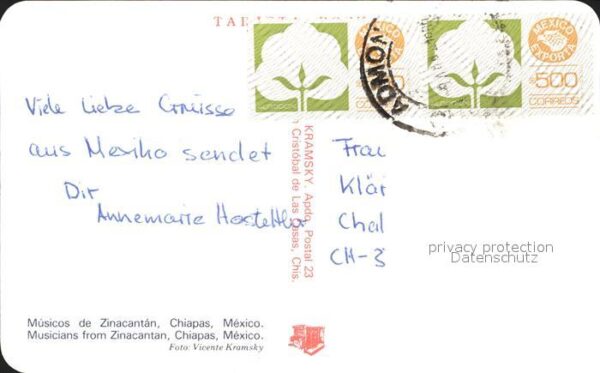 TARJETA
MEXICO
EXPORTA
$500
CORREOS
MEXICO
EXPORTA
$500
CORREOS
ADMON
Viele liebe Grüsse
aus Mexiko sendet
Dir
Annemarie Hostettler
Frau
Klär
Chal
CH-3
KRAMSKY. Apdo. Postal 23
n Cristóbal de Las Casas, Chis.
privacy protection
Datenschutz
Músicos de Zinacantán, Chiapas, México.
Musicians from Zinacantan, Chiapas, México.
Foto: Vicente Kramsky